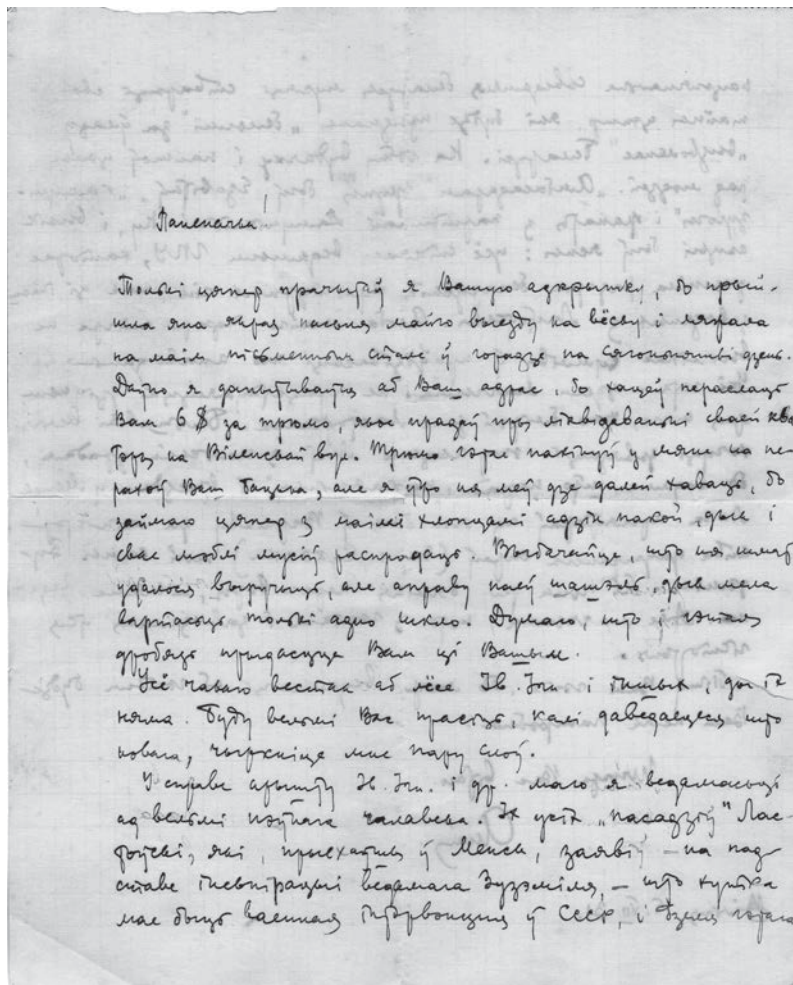 Паненачка!
Толькі цяпер прачытаў я Вашую адкрытку, бо прый-
шла яна якраз пасьля майго выезду на вёску і ляжала
на маім пісьменным стале ў горадзе па сягоньняшні дзень.
Даўно я дапытываўся аб Ваш адрас, бо хацеў пераслаць
Вам 6 $ за трюмо, якое прадаў пры ліквідаваньні сваей ква-
тэры на Віленскай вул. Трюмо гэтае пакінуў у мяне на пе-
рахоў Ваш бацька, але я ўжо ня меў дзе далей хаваць, бо
займаю цяпер з маімі хлопцамі адзін пакой, дык і
свае мэблі мусіў распродаць. Выбачайце, што ня шмат
удалося выручыць, але аправу паеў шашэль, дык мела
вартасьць толькі адно шкло. Думаю, што і гэтая
дробязь прыдасцца Вам ці Вашым.
Усё чакаю вестак аб лёсе Ів. Ігн. і іншых, ды іх
няма. Буду вельмі Вас прасіць, калі даведаецеся што
новага, чыркніце мне пару слоў.
У справе арышту Ів. Ігн. і др. маю я ведамасьці
ад вельмі пэўнага чалавека. Іх усіх „пасадзіў" Лас-
тоўскі, які, прыехаўшы ў Менск, заявіў – на пад-
ставе інсьпірацыі ведамага Зузэміля, – што хутка
мае быць ваенная інтэрвэнцыя ў СССР, і дзеля гэтага